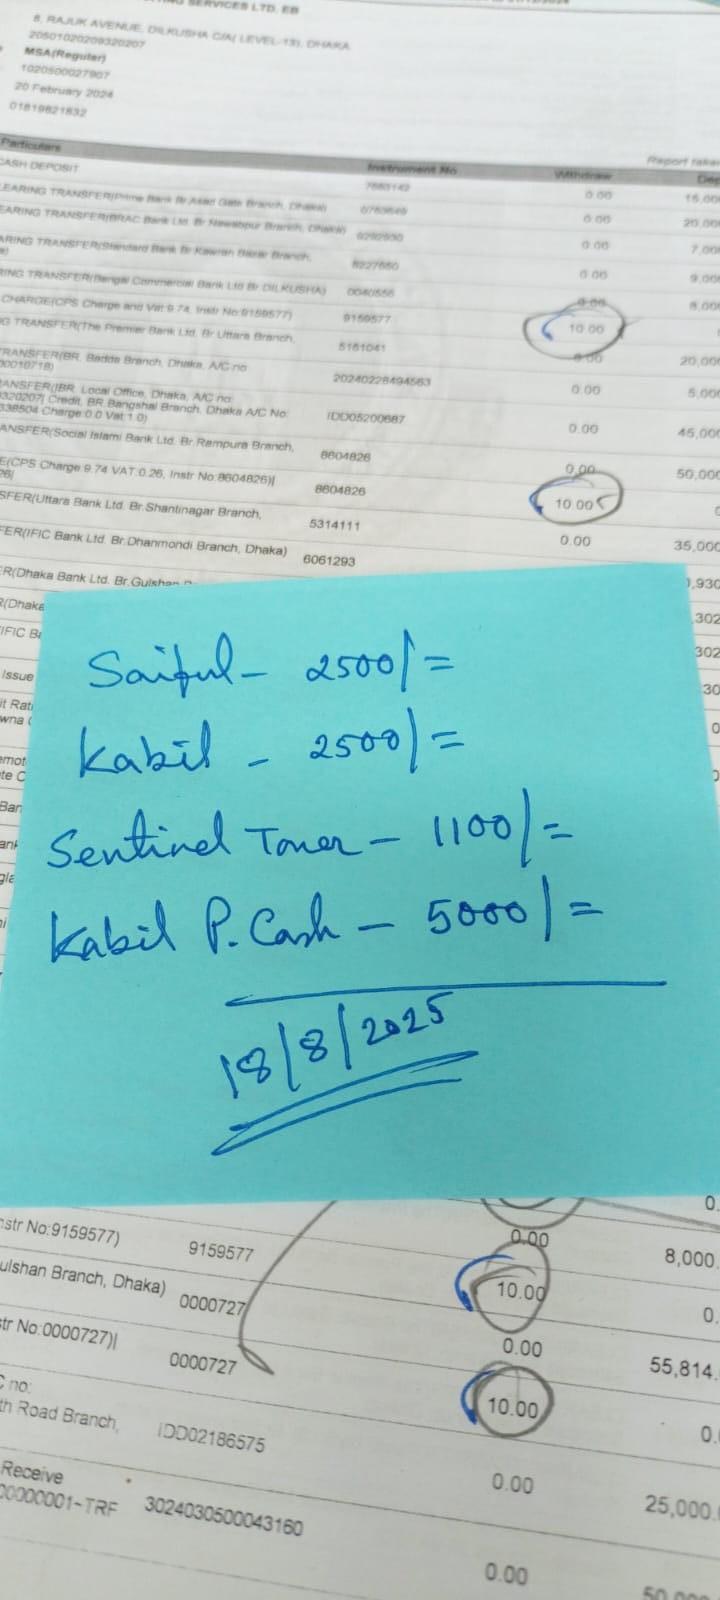 SERVICES LTD. EB
8, RAJUK AVENUE, DILKUSHA C/A( LEVEL-13), DHAKA
20501020209320207
MSA(Regular)
1020500027907
20 February 2024
01819821832
Report taken
Particulars Instrument No Withdraw
CASH DEPOSIT 7880142 0.00
LEARING TRANSFER(Prime Bank Br Asad Gate Branch, Dhaka) 0763649 0.00
EARING TRANSFER(BRAC Bank Ltd. Br Nawabpur Branch, Dhaka) 9292930 0.00
ARING TRANSFER(Standard Bank Br Kawran Bazar Branch, 8227680 0.00
RING TRANSFER(Bengal Commercial Bank Ltd Br DILKUSHA) 0040556 0.00
CHARGE(CPS Charge and Vat 9.74, Instr No:9159577) 9159577 10.00
G TRANSFER(The Premier Bank Ltd. Br Uttara Branch, 5161041 0.00 20,000
TRANSFER(BR. Badda Branch, Dhaka, A/C no 20240228494563 0.00 5,000
00010718)
ANSFER(IBR. Local Office, Dhaka, A/C no: IDD05200687 0.00 45,000
320207| Credit, BR.Bangshal Branch, Dhaka A/C No:
338504 Charge:0.0 Vat:1.0)
ANSFER(Social Islami Bank Ltd. Br.Rampura Branch, 8604826 0.00 50,000
E(CPS Charge 9.74 VAT:0.26, Instr No:8604826)| 8604826 10.00
26|
SFER(Uttara Bank Ltd. Br.Shantinagar Branch, 5314111 0.00 35,000
FER(IFIC Bank Ltd. Br.Dhanmondi Branch, Dhaka) 6061293
ER(Dhaka Bank Ltd. Br.Gulshan
Saiful - 2500/=
Kabil - 2500/=
Sentinel Toner - 1100/=
Kabil P. Cash - 5000/=
18/8/2025
nstr No:9159577) 9159577 0.00 8,000.
10.00
ulshan Branch, Dhaka) 0000727 0.00 55,814.
str No:0000727)| 0000727 10.00
C no:
th Road Branch, IDD02186575 0.00 25,000.
Receive
00000001~TRF 3024030500043160 0.00 50,000